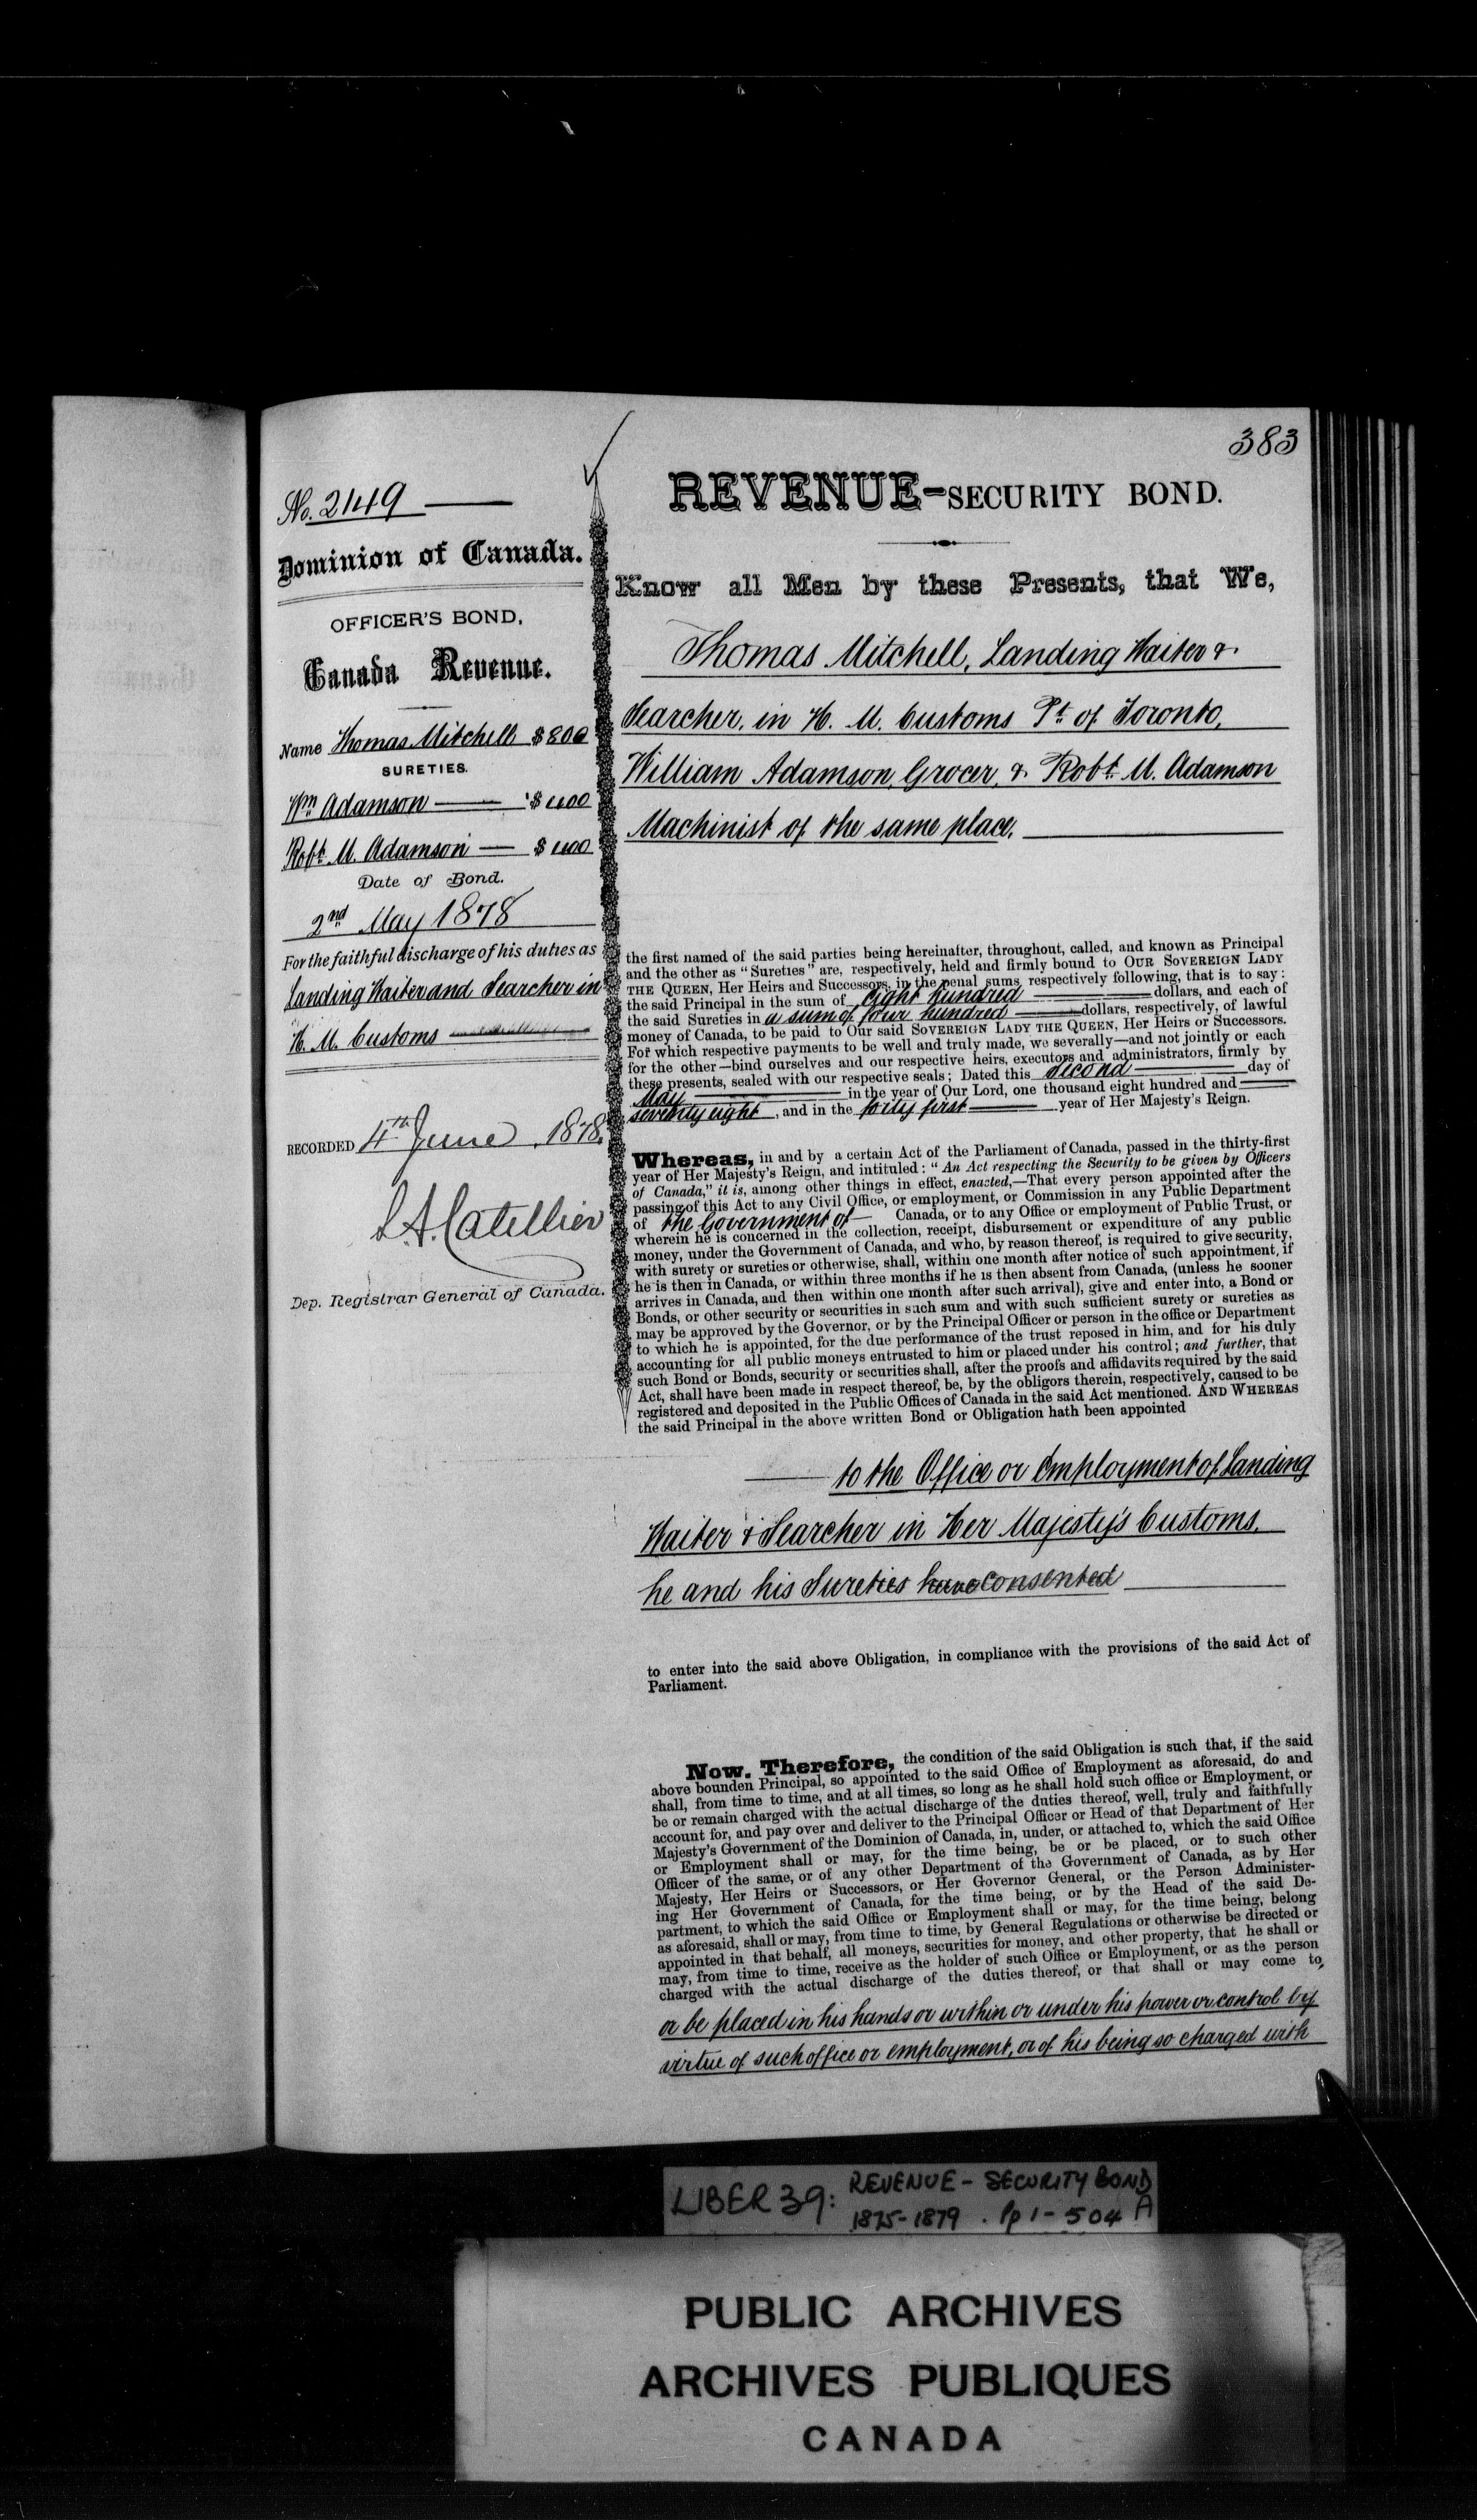 383
No. 2449
Dominion of Canada.
OFFICER'S BOND,
Canada Revenue.
Name Thomas Mitchell $800
SURETIES.
Wm Adamson $400
Robt. M. Adamson $400
Date of Bond.
2nd May 1878
For the faithful discharge of his duties as
Landing Waiter and Searcher in
H. M. Customs
RECORDED 4th June 1878.
L.A. Catellier
Dep. Registrar General of Canada.
REVENUE-SECURITY BOND.
Know all Men by these Presents, that We,
Thomas Mitchell, Landing Waiter &
Searcher, in H. M. Customs Pt. of Toronto,
William Adamson, Grocer, & Robt. M. Adamson
Machinist of the same place.
the first named of the said parties being hereinafter, throughout, called, and known as Principal
and the other as "Sureties" are, respectively, held and firmly bound to OUR SOVEREIGN LADY
THE QUEEN, Her Heirs and Successors, in the penal sums respectively following, that is to say:
the said Principal in the sum of Eight hundred dollars, and each of
the said Sureties in a sum of four hundred dollars, respectively, of lawful
money of Canada, to be paid to Our said SOVEREIGN LADY THE QUEEN, Her Heirs or Successors.
For which respective payments to be well and truly made, we severally—and not jointly or each
for the other—bind ourselves and our respective heirs, executors and administrators, firmly by
these presents, sealed with our respective seals; Dated this second day of
May in the year of Our Lord, one thousand eight hundred and
seventy eight, and in the forty first year of Her Majesty's Reign.
Whereas, in and by a certain Act of the Parliament of Canada, passed in the thirty-first
year of Her Majesty's Reign, and intituled: "An Act respecting the Security to be given by Officers
of Canada," it is, among other things in effect, enacted,—That every person appointed after the
passing of this Act to any Civil Office, or employment, or Commission in any Public Department
of the Government of Canada, or to any Office or employment of Public Trust, or
wherein he is concerned in the collection, receipt, disbursement or expenditure of any public
money, under the Government of Canada, and who, by reason thereof, is required to give security,
with surety or sureties or otherwise, shall, within one month after notice of such appointment, if
he is then in Canada, or within three months if he is then absent from Canada, (unless he sooner
arrives in Canada, and then within one month after such arrival), give and enter into, a Bond or
Bonds, or other security or securities in such sum and with such sufficient surety or sureties as
may be approved by the Governor, or by the Principal Officer or person in the office or Department
to which he is appointed, for the due performance of the trust reposed in him, and for his duly
accounting for all public moneys entrusted to him or placed under his control; and further, that
such Bond or Bonds, security or securities shall, after the proofs and affidavits required by the said
Act, shall have been made in respect thereof, be, by the obligors therein, respectively, caused to be
registered and deposited in the Public Offices of Canada in the said Act mentioned. AND WHEREAS
the said Principal in the above written Bond or Obligation hath been appointed
to the Office or Employment of Landing
Waiter & Searcher in Her Majesty's Customs.
he and his Sureties have consented
to enter into the said above Obligation, in compliance with the provisions of the said Act of
Parliament.
Now. Therefore, the condition of the said Obligation is such that, if the said
above bounden Principal, so appointed to the said Office of Employment as aforesaid, do and
shall, from time to time, and at all times, so long as he shall hold such office or Employment, or
be or remain charged with the actual discharge of the duties thereof, well, truly and faithfully
account for, and pay over and deliver to the Principal Officer or Head of that Department of Her
Majesty's Government of the Dominion of Canada, in, under, or attached to, which the said Office
or Employment shall or may, for the time being, be or be placed, or to such other
Officer of the same, or of any other Department of the Government of Canada, as by Her
Majesty, Her Heirs or Successors, or Her Governor General, or the Person Administer-
ing Her Government of Canada, for the time being, or by the Head of the said De-
partment, to which the said Office or Employment shall or may, for the time being, belong
as aforesaid, shall or may, from time to time, by General Regulations or otherwise be directed or
appointed in that behalf, all moneys, securities for money, and other property, that he shall or
may, from time to time, receive as the holder of such Office or Employment, or as the person
charged with the actual discharge of the duties thereof, or that shall or may come to,
or be placed in his hands or within or under his power or control by
virtue of such office or employment, or of his being so charged with
LIBER 39: REVENUE - SECURITY BOND
1875-1879. Pp 1-504 A
PUBLIC ARCHIVES
ARCHIVES PUBLIQUES
CANADA